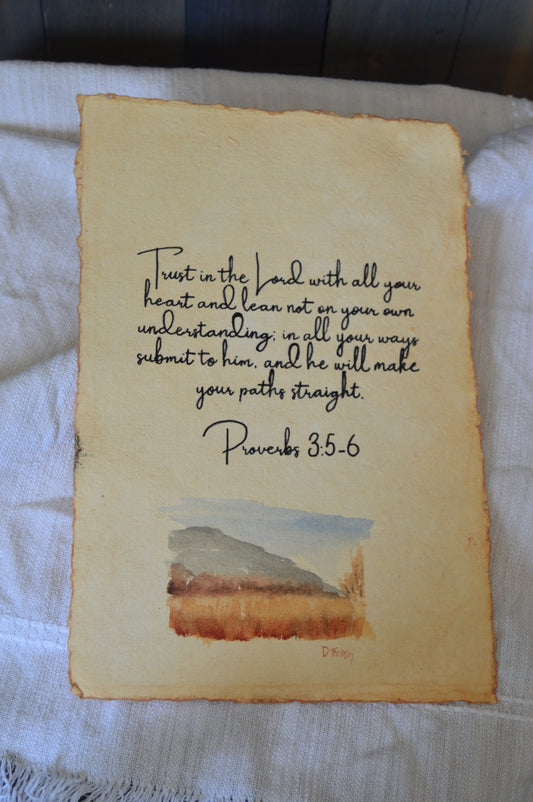 Trust in the Lord with all your
heart and lean not on your own
understanding; in all your ways
submit to him, and he will make
your paths straight.
Proverbs 3:5-6
D